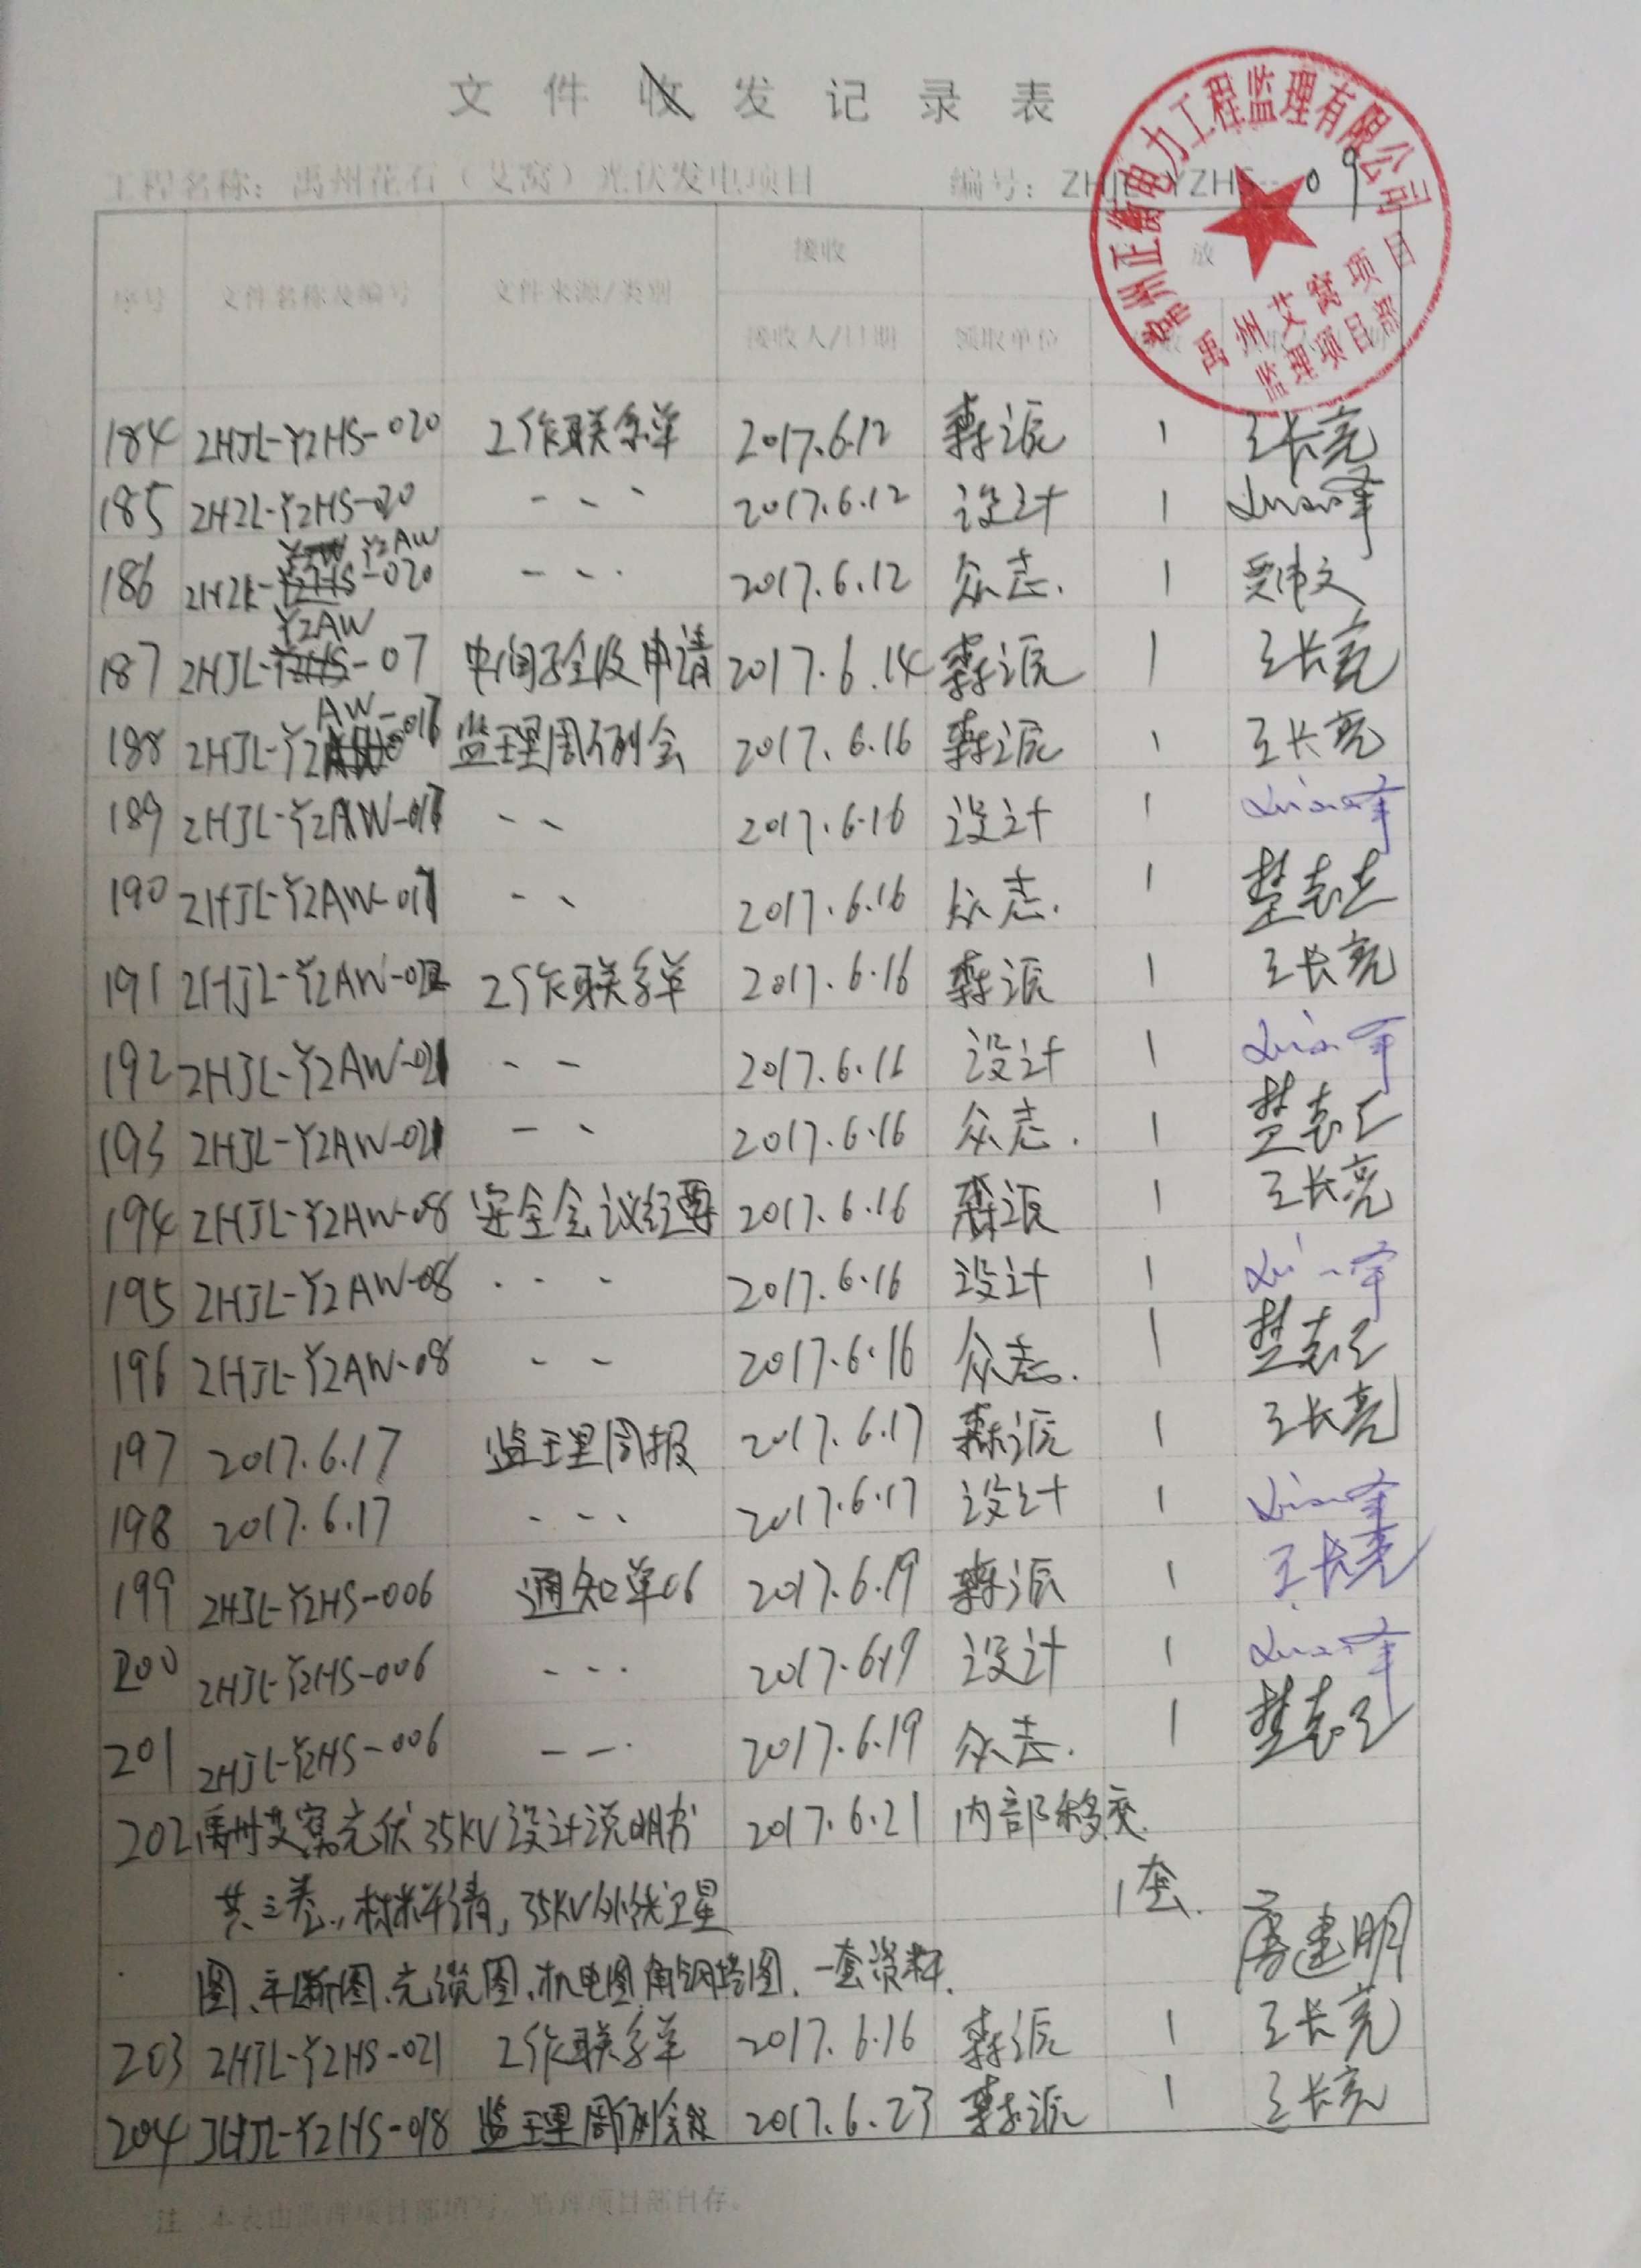 文件收发记录表
工程名称：禹州花石（艾窝）光伏发电项目 编号：ZHJL-YZHS-09
郑州正衡电力工程监理有限公司
禹州艾窝项目
监理项目部
接收 放
序号 文件名称及编号 文件来源/类别
接收人/日期 领取单位
184 ZHJL-YZHS-020 工作联系单 2017.6.12 森源 1 王长亮
185 ZHZL-YZHS-020 - - - 2017.6.12 设计 1
YZAW
186 ZHZL-YZHS-020 - - - 2017.6.12 众志. 1 贾伟文
YZAW
187 ZHJL-YZHS-07 中间验收申请 2017.6.14 森源 1 王长亮
AW-017
188 ZHJL-YZ 监理周例会 2017.6.16 森源 1 王长亮
189 ZHJL-YZAW-017 - - 2017.6.16 设计 1
190 ZHJL-YZAW-017 - - 2017.6.16 众志. 1
191 ZHJL-YZAW-021 工作联系单 2017.6.16 森源 1 王长亮
192 ZHJL-YZAW-021 - - 2017.6.16 设计 1
193 ZHJL-YZAW-021 - - 2017.6.16 众志. 1
194 ZHJL-YZAW-08 安全会议纪要 2017.6.16 森源 1 王长亮
195 ZHJL-YZAW-08 - - - 2017.6.16 设计 1
196 ZHJL-YZAW-08 - - 2017.6.16 众志. 1
197 2017.6.17 监理周报 2017.6.17 森源 1 王长亮
198 2017.6.17 - - - 2017.6.17 设计 1
199 ZHJL-YZHS-006 通知单06 2017.6.19 森源 1 王长亮
200 ZHJL-YZHS-006 - - - 2017.6.19 设计 1
201 ZHJL-YZHS-006 - - - 2017.6.19 众志. 1
202 禹州艾窝光伏35KV设计说明书 2017.6.21 内部移交.
共三卷，材料清，35KV外线卫星 1套.
图、平断图、光缆图、机电图、角钢塔图、一套资料. 建明
203 ZHJL-YZHS-021 工作联系单 2017.6.16 森源 1 王长亮
204 ZHJL-YZHS-018 监理周例会 2017.6.23 森源 1 王长亮
注：本表由监理项目部填写，监理项目部自存。